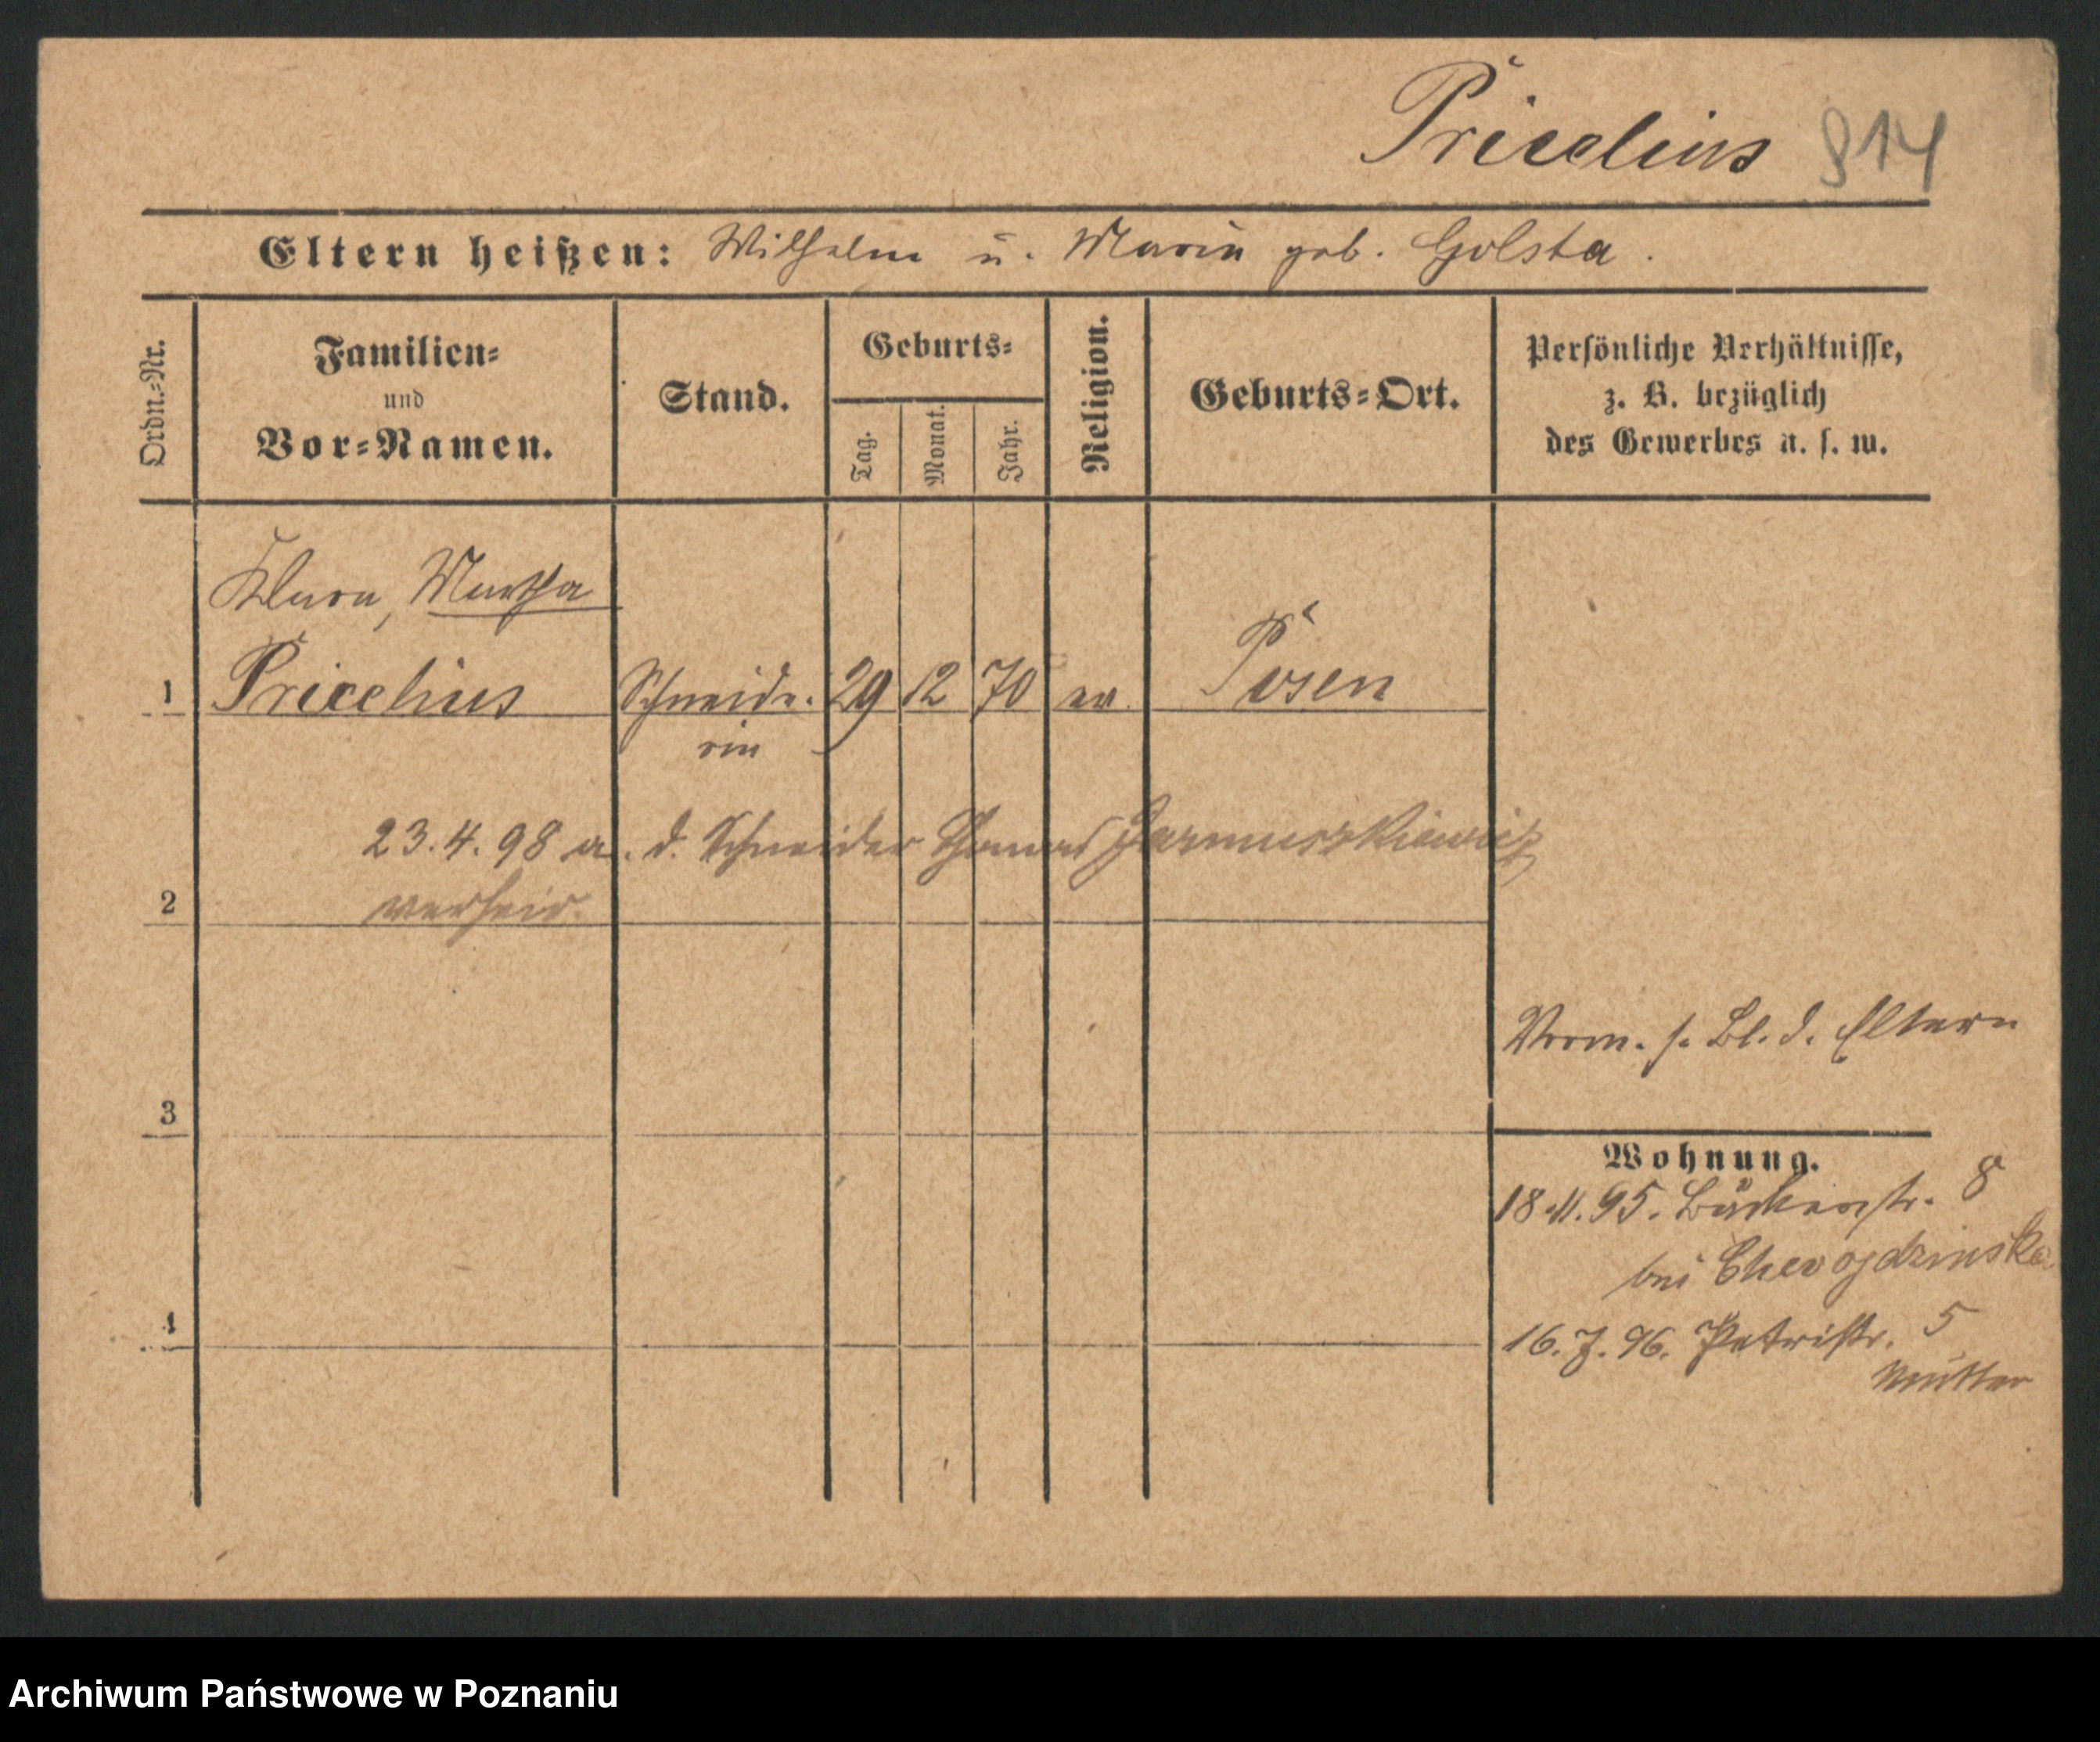 Pricelius 814
Eltern heißen: Wilhelm u. Maria geb. Golsta.
Ordn.-Nr.
Familien-
und
Vor-Namen.
Stand.
Geburts-
Tag.
Monat.
Jahr.
Religion.
Geburts-Ort.
Persönliche Verhältnisse,
z. B. bezüglich
des Gewerbes u. s. w.
Klara, Martha
1 Pricelius Schneide- 29 12 70 ev. Posen
rin
23.4.98 a. d. Schneider Thomas Jarmuszkiewicz
2 verheir.
Vorm. s. Bl. d. Eltern
3
Wohnung.
18.11.95. Bäckerstr. 8
bei
4
16.7.96. Petristr. 5
Mutter
Archiwum Państwowe w Poznaniu